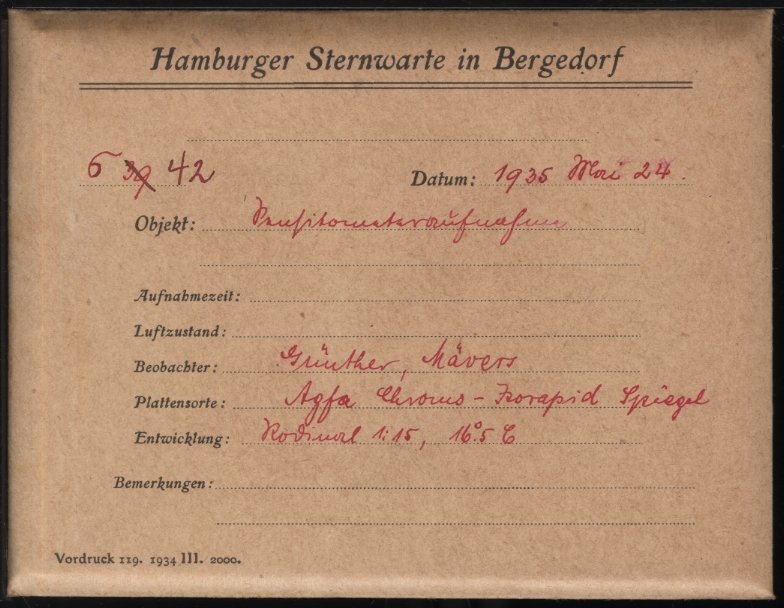 Hamburger Sternwarte in Bergedorf
6 39 42 Datum: 1935 Mai 24.
Objekt: Sensitometeraufnahme
Aufnahmezeit:
Luftzustand:
Beobachter: Günther, Mävers
Plattensorte: Agfa Chromo-Isorapid Spiegel
Entwicklung: Rodinal 1:15, 16°5 C
Bemerkungen:
Vordruck 119. 1934 III. 2000.